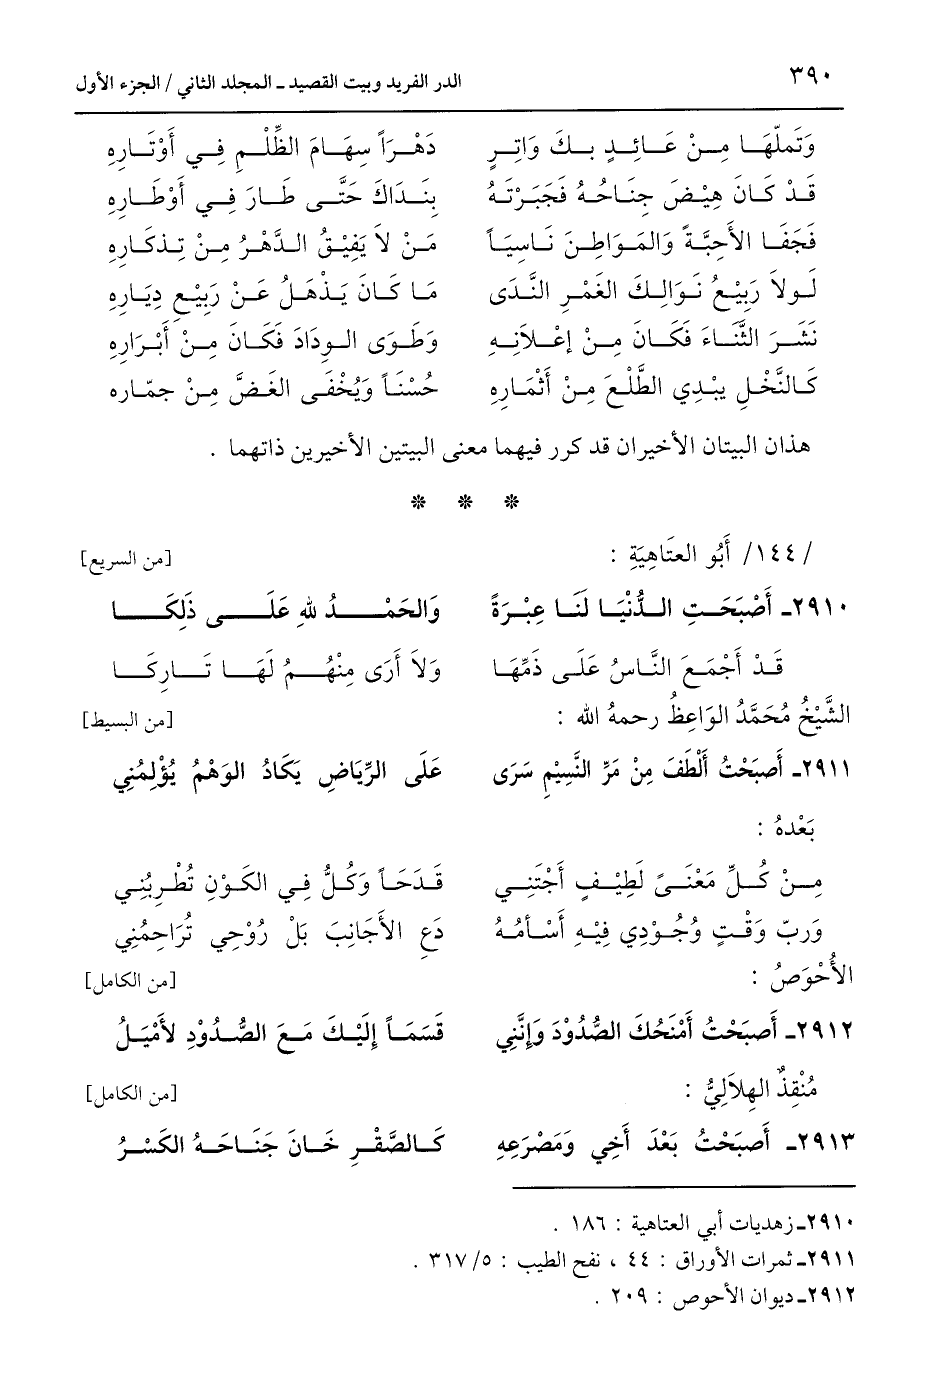 ٣٩٠ الدر الفريد وبيت القصيد ـ المجلد الثاني / الجزء الأول
وَتَملّهَا مِنْ عَائِدٍ بِكَ وَاتِرٍ دَهْرَاً سِهَامَ الظِّلْمِ فِي أَوْتَارِهِ
قَدْ كَانَ هِيْضَ جِنَاحُهُ فَجَبَرْتَهُ بِنَدَاكَ حَتَّى طَارَ فِي أَوْطَارِهِ
فَجَفَا الأَحِبَّةَ وَالمَوَاطِنَ نَاسِيَاً مَنْ لاَ يَفِيْقُ الدَّهْرُ مِنْ تِذكَارِهِ
لَولاَ رَبِيْعُ نَوَالِكَ الغَمْرِ النَّدَى مَا كَانَ يَذْهَلُ عَنْ رَبِيْعِ دِيَارِهِ
نَشَرَ الثَّنَاءَ فَكَانَ مِنْ إعْلاَنِهِ وَطَوَى الوِدَادَ فَكَانَ مِنْ أَبْرَارِهِ
كَالنَّخْلِ يبْدِي الطَّلْعَ مِنْ أَثْمَارِهِ حُسْنَاً وَيُخْفَى الغَضَّ مِنْ جمّارِه
هذان البيتان الأخيران قد كرر فيهما معنى البيتين الأخيرين ذاتهما .
* * *
/ ١٤٤/ أَبُو العَتَاهِيَةِ : [من السريع]
٢٩١٠ـ أَصْبَحَتِ الدُّنْيَا لَنَا عِبْرَةً وَالحَمْدُ للهِ عَلَى ذَلِكَا
قَدْ أَجْمَعَ النَّاسُ عَلَى ذَمِّهَا وَلاَ أَرَى مِنْهُمُ لَهَا تَارِكَا
الشَّيْخُ مُحَمَّدُ الوَاعِظُ رحمهُ الله : [من البسيط]
٢٩١١ـ أَصبَحْتُ أَلْطَفَ مِنْ مَرِّ النَّسِيْمِ سَرَى عَلَى الرِّيَاضِ يَكَادُ الوَهْمُ يُؤْلِمُنِي
بَعْدهُ :
مِنْ كُلِّ مَعْنَىً لَطِيْفٍ أَجْتَنِي قَدَحَاً وَكُلُّ فِي الكَوْنِ تُطْرِبُنِي
وَربّ وَقْتٍ وُجُوْدِي فِيْهِ أَسْأَمُهُ دَعِ الأَجَانِبَ بَلْ رُوْحِي تُزَاحِمُنِي
الأَحْوَصُ : [من الكامل]
٢٩١٢ـ أَصبَحْتُ أَمْنَحُكَ الصُّدُوْدَ وَإِنَّنِي قَسَمَاً إِلَيْكَ مَعَ الصُّدُوْدِ لأَمْيَلُ
مُنْقِذٌ الهِلاَلِيُّ : [من الكامل]
٢٩١٣ـ أَصبَحْتُ بَعْدَ أَخِي وَمَصْرَعِهِ كَالصَّقْرِ خَانَ جَنَاحَهُ الكَسْرُ
٢٩١٠ـ زهديات أبي العتاهية : ١٨٦ .
٢٩١١ـ ثمرات الأوراق : ٤٤ ، نفح الطيب : ٥/ ٣١٧ .
٢٩١٢ـ ديوان الأحوص : ٢٠٩ .